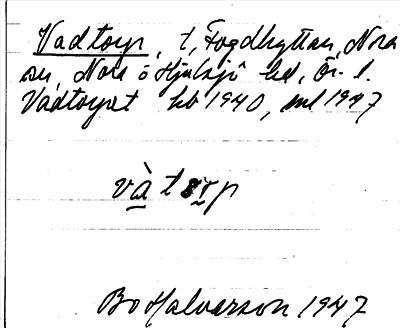 Vadtorp, t, Fogdhyttan, Nora
sn, Nora o Hjulsjö hd, Ör. l.
Vadtorpet hb 1940, ml 1947
Bo Halvarson 1947